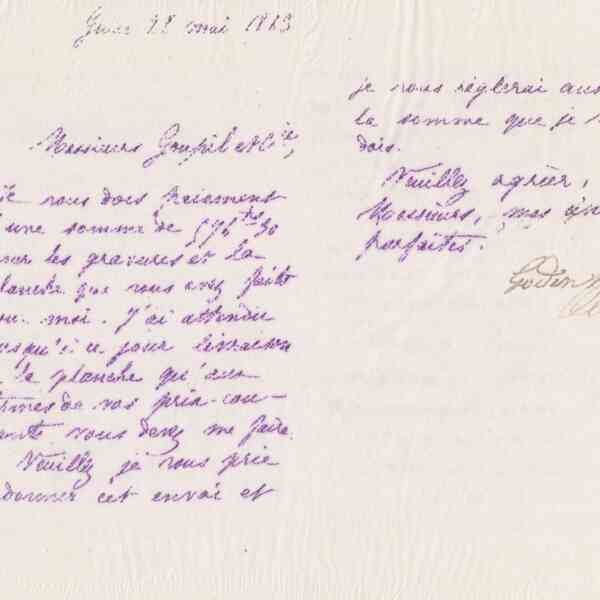 22 mai 1883
Messieurs Goupil et Cie,
je vous dois paiement
d'une somme de
pour les gravures et la
planche que vous avez faite
pour moi. J'ai attendu
jusqu'à ce jour livraison
de la planche qu'aux
termes de vos prix-cou-
rants vous devez me faire.
Veuillez je vous prie
donner cet envoi et
je vous règlerai aus
la somme que je
dois.
Veuillez agréer,
Messieurs, mes
parfaites.
Godin